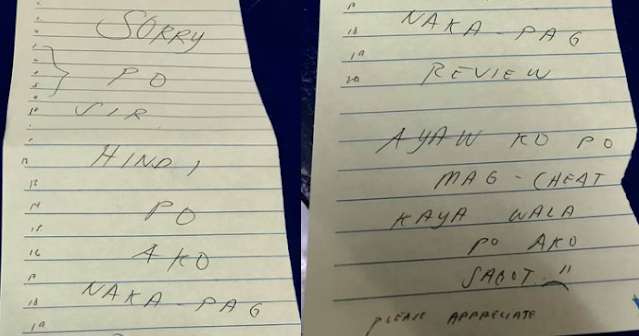 SORRY
PO
SIR
HINDI
PO
AKO
NAKA-PAG
NAKA-PAG
REVIEW
AYAW KO PO
MAG-CHEAT
KAYA WALA
PO AKO
SAGOT
PLEASE APPRECIATE